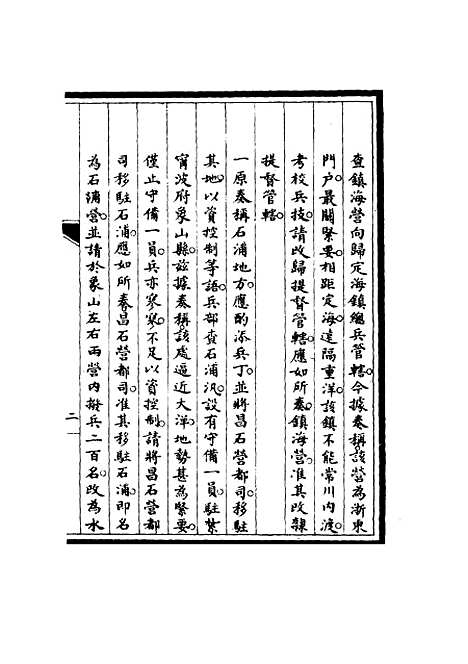 查鎮海營向歸定海鎮總兵管轄今據奏稱該營為浙東
門户最關緊要相距定海遠隔重洋該鎮不能常川内渡
考校兵技請改歸提督管轄應如所奏鎮海營准其改隸
提督管轄
一原奏稱石浦地方應酌添兵丁並將昌石營都司移駐
其地以資控制等語兵部查石浦汛設有守備一員駐紮
甯波府象山縣兹據奏稱該處逼近大洋地勢甚為緊要
僅止守備一員兵亦寥寥不足以資控制請將昌石營都
司移駐石浦應如所奏昌石營都司准其移駐石浦即名
為石浦營並請於象山左右兩營内撥兵二百名改為水
二